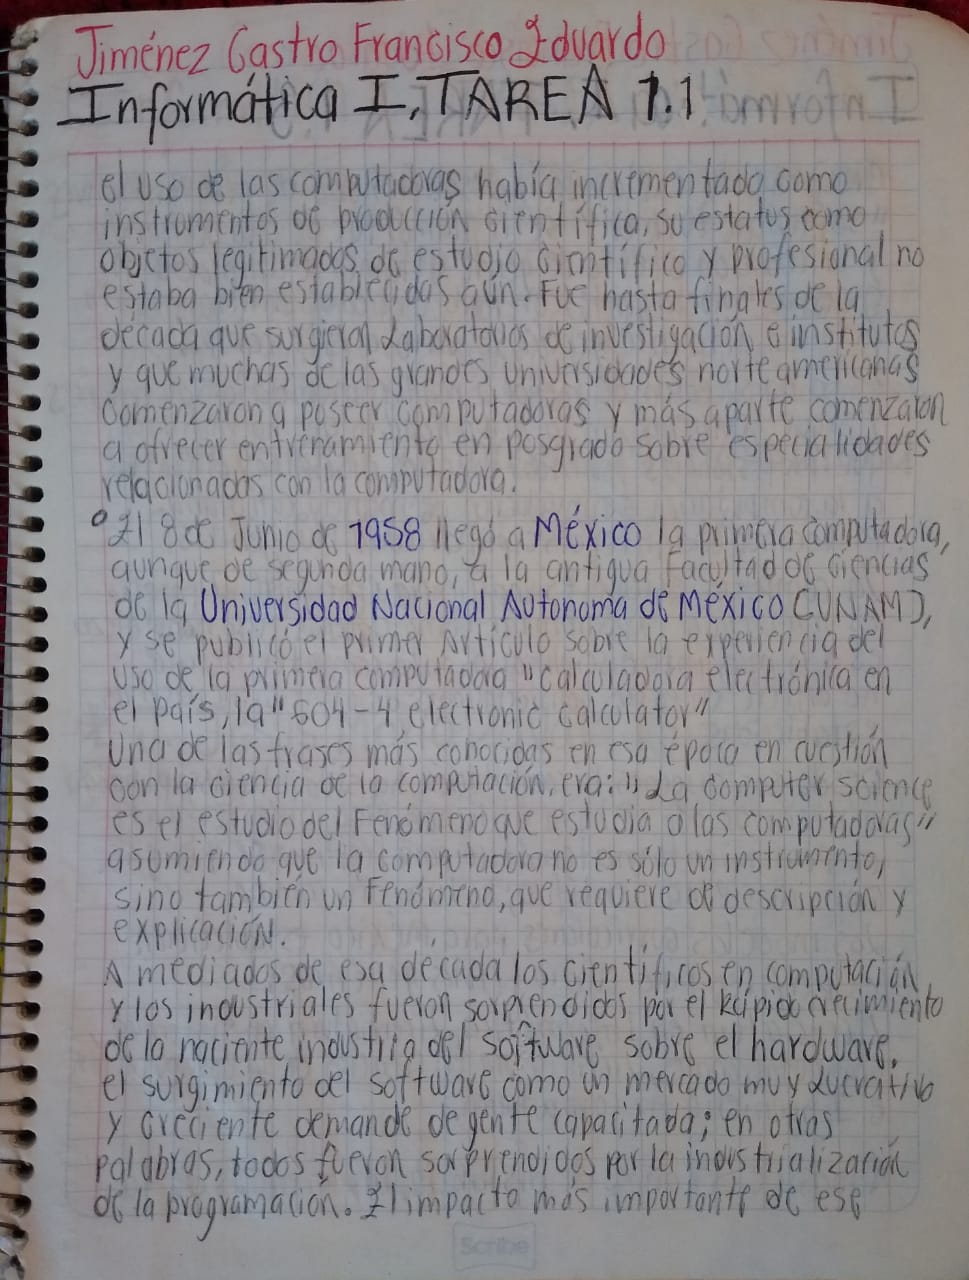 Jiménez Castro Francisco Eduardo
Informática I, TAREA 1.1
el uso de las computadoras había incrementado como
instrumentos de producción científica, su estatus como
objetos legitimados de estudio científico y profesional no
estaba bien establecidas aún. Fue hasta finales de la
década que surgieron Laboratorios de investigación e institutos
y que muchas de las grandes universidades norteamericanas
Comenzaron a poseer computadoras y más aparte comenzaron
a ofrecer entrenamiento en posgrado sobre especialidades
relacionadas con la computadora.
° El 8 de Junio de 1958 llegó a México la primera computadora,
aunque de segunda mano, a la antigua Facultad de Ciencias
de la Universidad Nacional Autonoma de México (UNAM),
y se publicó el primer Artículo sobre la experiencia del
uso de la primera computadora "calculadora electrónica en
el país, la "604-4 electronic calculator"
Una de las frases más conocidas en esa época en cuestión
con la ciencia de la computación, era: "La computer science
es el estudio del Fenómeno que estudia a las computadoras"
asumiendo que la computadora no es sólo un instrumento,
sino también un fenómeno, que requiere de descripción y
explicación.
A mediados de esa década los científicos en computación
y los industriales fueron sorprendidos por el Rápido crecimiento
de la naciente industria del software sobre el hardware.
el surgimiento del software como un mercado muy Lucrativo
y creciente demande de gente capacitada; en otras
palabras, todos fueron sorprendidos por la industrialización
de la programación. El impacto más importante de ese
Scribe